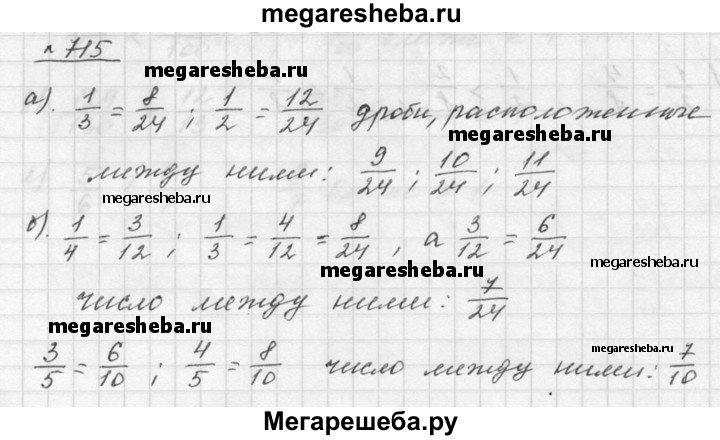 megaresheba.ru
№ 715
megaresheba.ru
а). 1/3 = 8/24 ; 1/2 = 12/24 дроби, расположенные
megaresheba.ru
между ними: 9/24 ; 10/24 ; 11/24
megaresheba.ru
б). 1/4 = 3/12 ; 1/3 = 4/12 = 8/24 , а 3/12 = 6/24
megaresheba.ru
megaresheba.ru
число между ними: 7/24
megaresheba.ru
3/5 = 6/10 ; 4/5 = 8/10 число между ними: 7/10
megaresheba.ru
Мегарешеба.ру